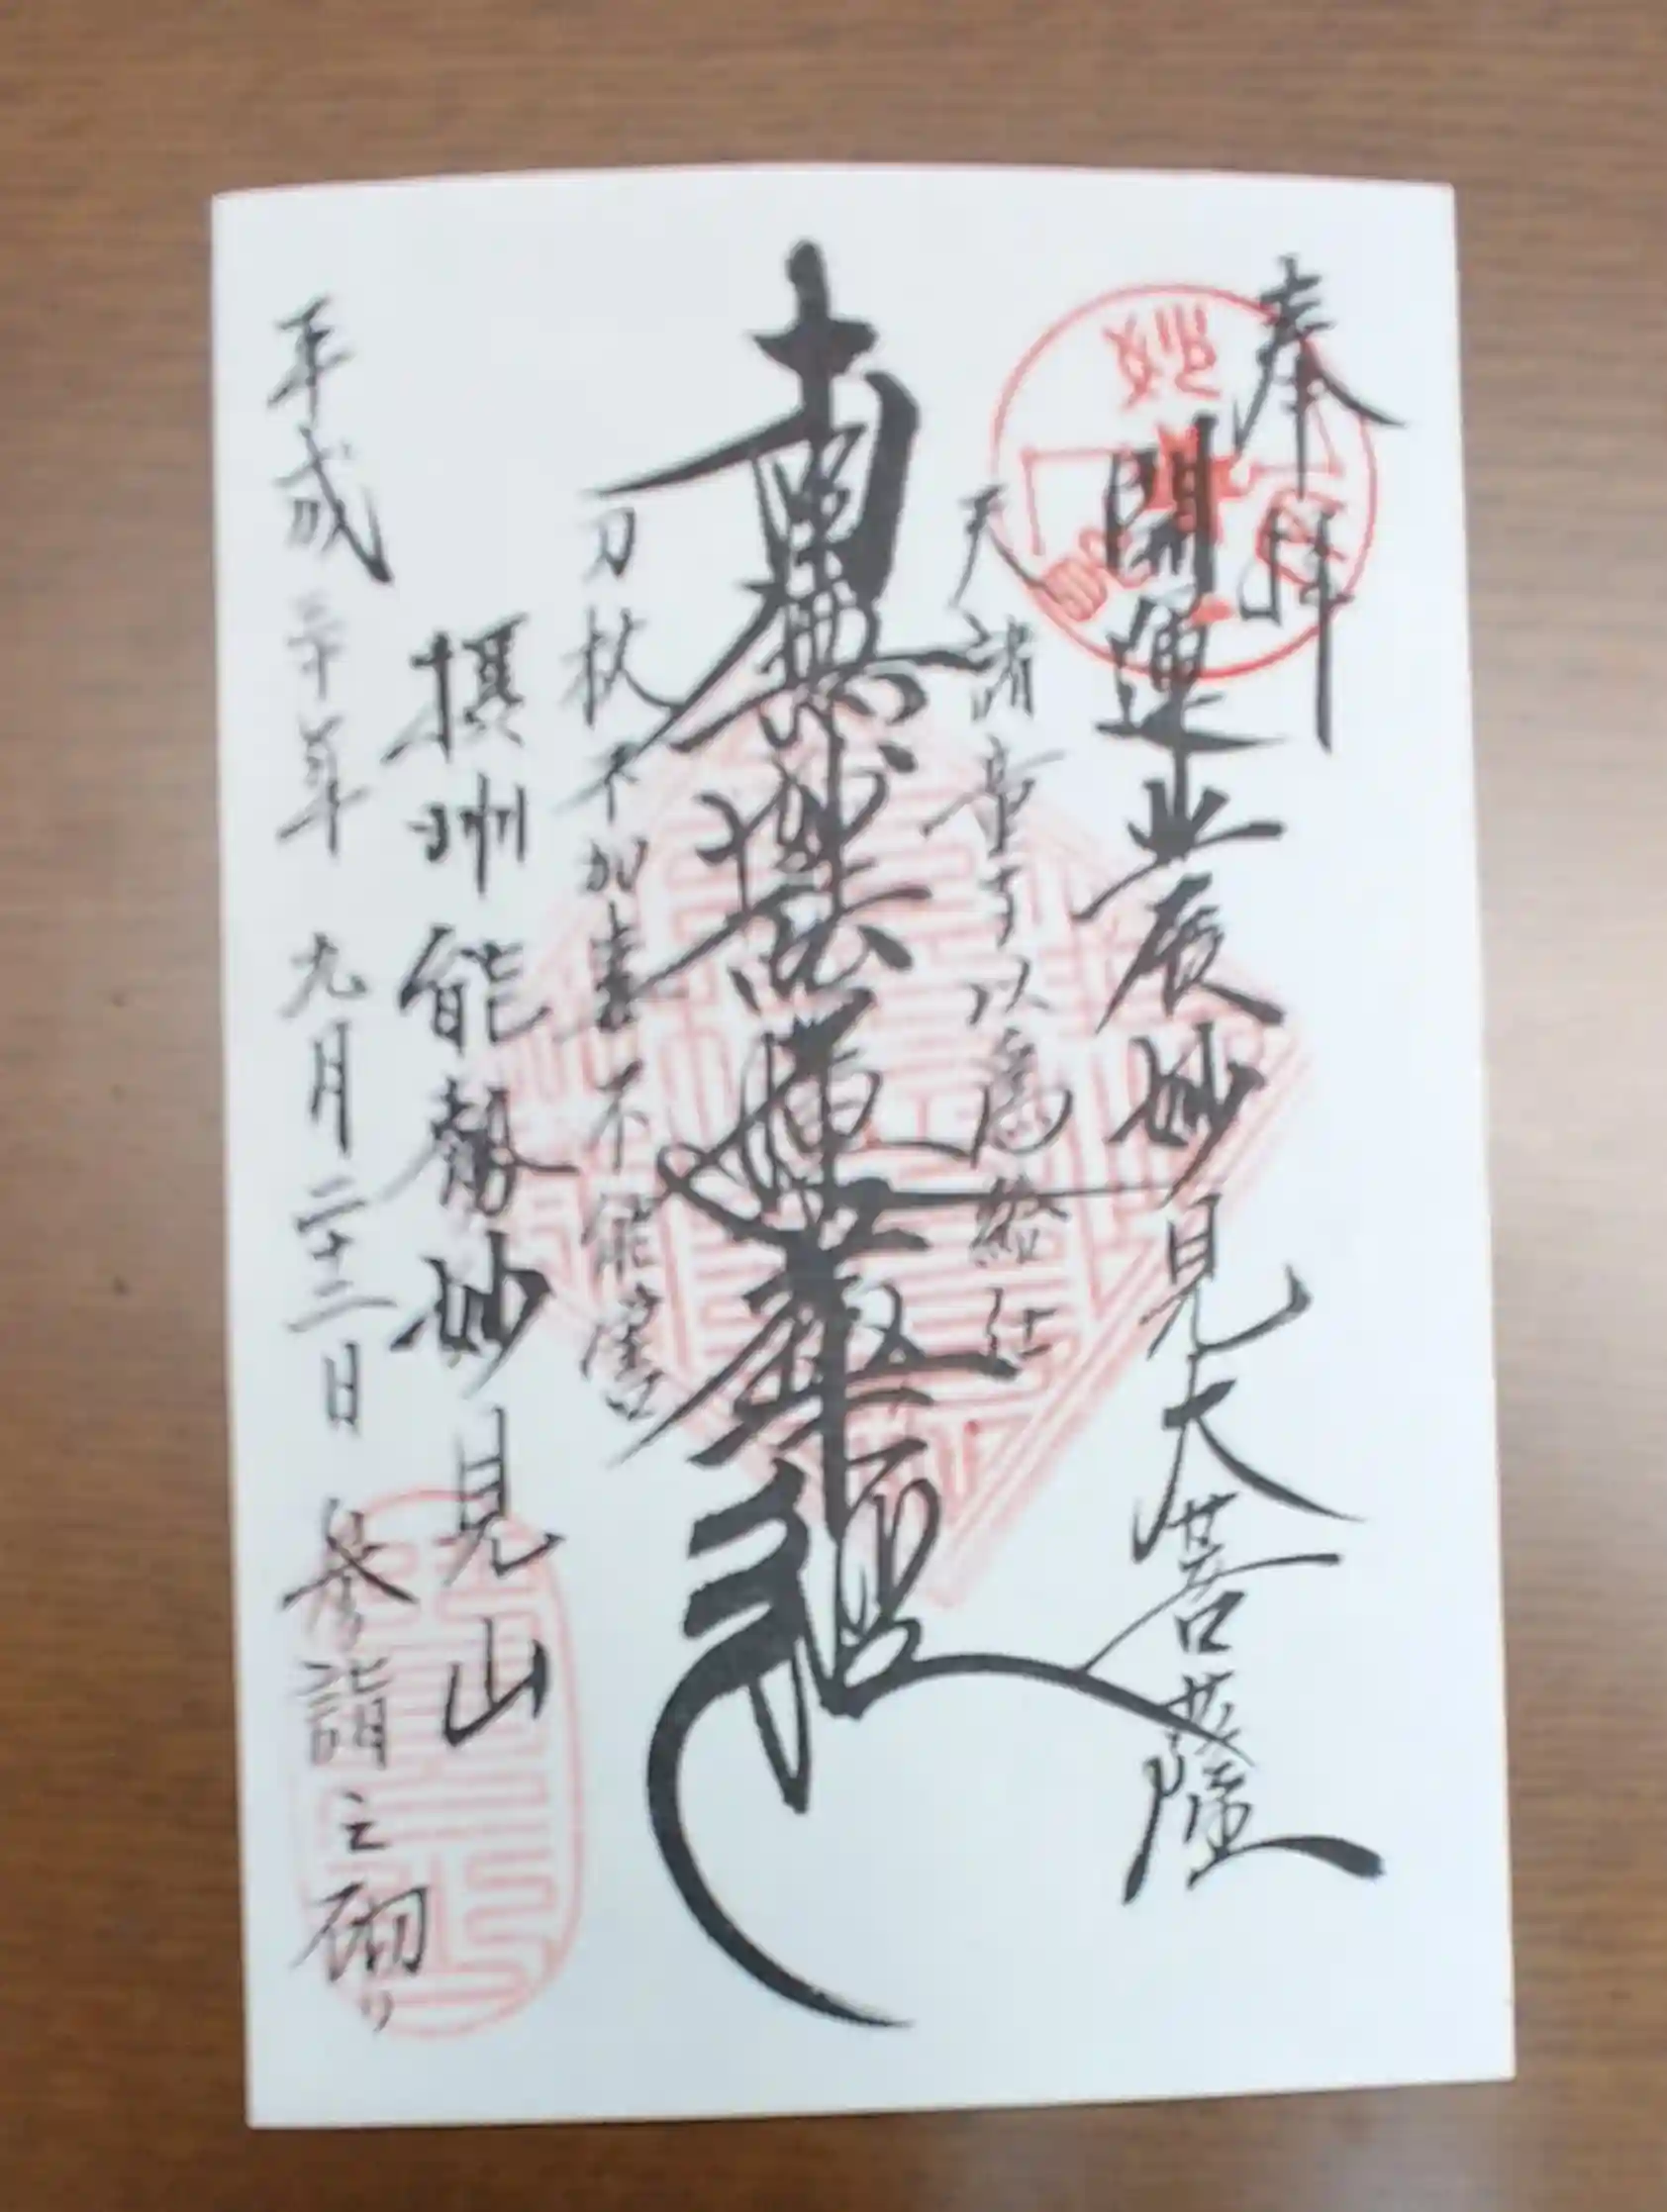 奉拝
開運北辰妙見大菩薩
天諸童子以為給仕
南無妙法蓮華経
刀杖不加毒不能害
摂州能勢妙見山
平成三十年九月二十三日参詣之砌り